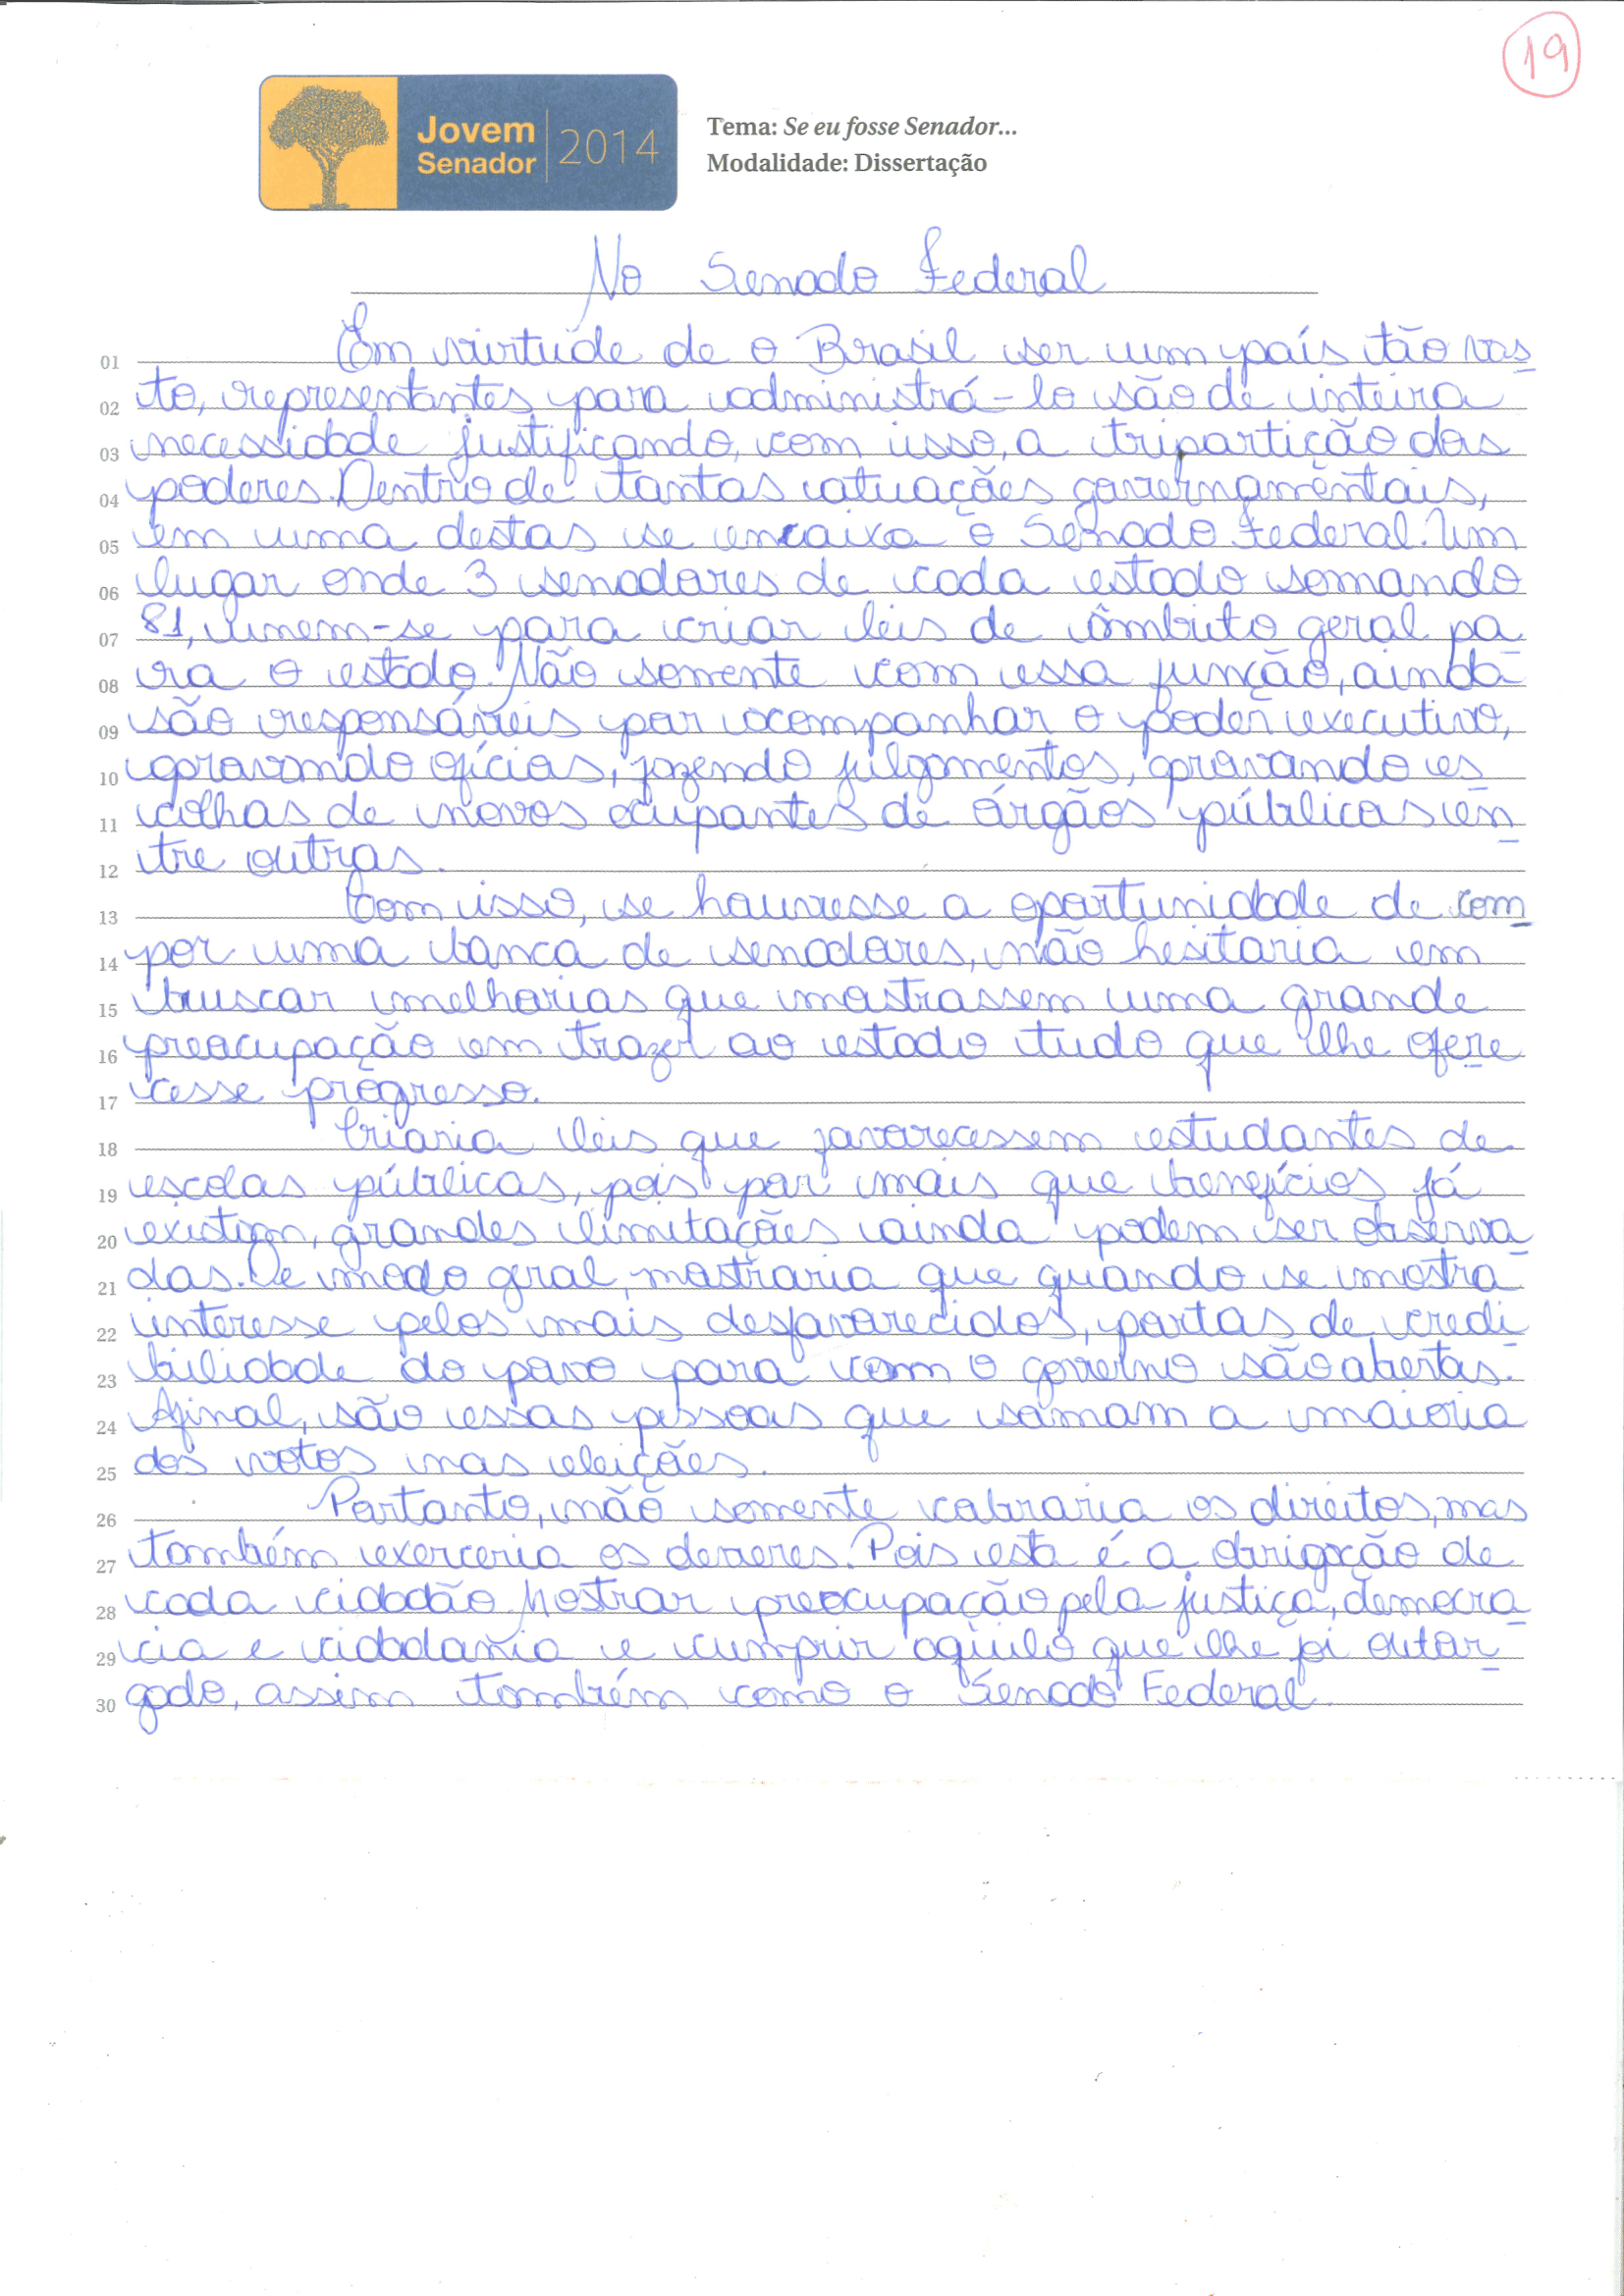 19
Jovem
Senador
2014
Tema: Se eu fosse Senador...
Modalidade: Dissertação
No Senado Federal
01 Em virtude de o Brasil ser um país tão vas
02 to, representantes para administrá-lo são de inteira
03 necessidade justificando, com isso, a tripartição dos
04 poderes. Dentro de tantas atuações governamentais,
05 em uma destas se encaixa o Senado Federal. Um
06 lugar onde 3 senadores de cada estado somando
07 81, unem-se para criar leis de âmbito geral pa
08 ra o estado. Não somente com essa função, ainda
09 são responsáveis por acompanhar o poder executivo,
10 aprovando ofícios, fazendo julgamentos, aprovando es
11 colhas de novos ocupantes de órgãos públicos en
12 tre outras.
13 Com isso, se houvesse a oportunidade de com
14 por uma banca de senadores, não hesitaria em
15 buscar melhorias que mostrassem uma grande
16 preocupação em trazer ao estado tudo que lhe ofere
17 cesse progresso.
18 Criaria leis que favorecessem estudantes de
19 escolas públicas, pois por mais que benefícios já
20 existam, grandes limitações ainda podem ser observa
21 das. De modo geral, mostraria que quando se mostra
22 interesse pelos mais desfavorecidos, portas de credi
23 bilidade do povo para com o governo são abertas.
24 Afinal, são essas pessoas que somam a maioria
25 dos votos nas eleições.
26 Portanto, não somente cobraria os direitos, mas
27 também exerceria os deveres. Pois esta é a obrigação de
28 cada cidadão. Mostrar preocupação pela justiça, democra
29 cia e cidadania e cumprir aquilo que lhe foi outor
30 gado, assim também como o Senado Federal.